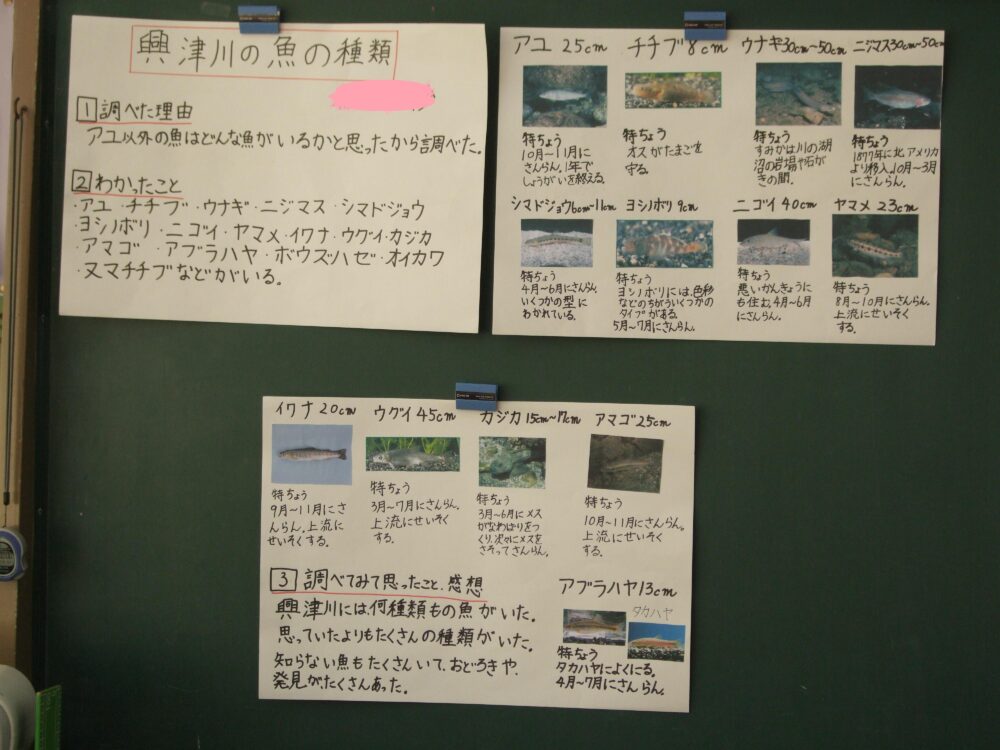 興津川の魚の種類
1 調べた理由
アユ以外の魚はどんな魚がいるかと思ったから調べた。
2 わかったこと
・アユ・チチブ・ウナギ・ニジマス・シマドジョウ
ヨシノボリ・ニゴイ・ヤマメ・イワナ・ウグイ・カジカ
・アマゴ・アブラハヤ・ボウズハゼ・オイカワ
・ヌマチチブなどがいる。
アユ 25cm
特ちょう
10月〜11月に
さんらん。1年で
しょうがいを終える。
チチブ 8cm
特ちょう
オスがたまごを
守る。
ウナギ30cm〜50cm
特ちょう
すみかは川の湖
沼の岩場や石が
きの間。
ニジマス30cm〜50cm
特ちょう
1877年に北アメリカ
より移入。10月〜3月
にさんらん。
シマドジョウ6cm〜11cm
特ちょう
4月〜6月にさんらん。
いくつかの型に
わかれている。
ヨシノボリ 9cm
特ちょう
ヨシノボリには、色彩
などのちがういくつかの
タイプがある。
5月〜7月にさんらん。
ニゴイ 40cm
特ちょう
悪いかんきょうに
も住む。4月〜6月
にさんらん。
ヤマメ 23cm
特ちょう
8月〜10月にさんらん。
上流にせいそく
する。
イワナ20cm
特ちょう
9月〜11月にさ
んらん。上流に
せいそくする。
ウグイ 45cm
特ちょう
3月〜7月にさんらん。
上流にせいそく
する。
カジカ 15cm〜17cm
特ちょう
3月〜6月にメス
がなわばりをつ
くり、次々にメスを
さそってさんらん。
アマゴ25cm
特ちょう
10月〜11月にさんらん。
上流にせいそく
する。
3 調べてみて思ったこと、感想
興津川には、何種類もの魚がいた。
思っていたよりもたくさんの種類がいた。
知らない魚もたくさんいて、おどろきや、
発見が、たくさんあった。
アブラハヤ13cm
タカハヤ
特ちょう
タカハヤによくにる。
4月〜7月にさんらん。